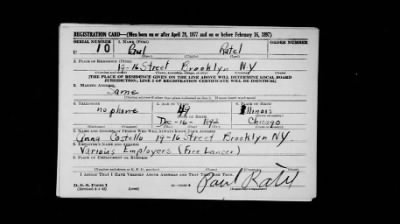 REGISTRATION CARD—(Men born on or after April 28, 1877 and on or before February 16, 1897)
SERIAL NUMBER 1. NAME (Print) ORDER NUMBER
U 10 Paul Ratel
(First) (Middle) (Last)
2. PLACE OF RESIDENCE (Print)
19-16 Street Brooklyn N.Y
(Number and street) (Town, township, village, or city) (County) (State)
[THE PLACE OF RESIDENCE GIVEN ON THE LINE ABOVE WILL DETERMINE LOCAL BOARD
JURISDICTION; LINE 2 OF REGISTRATION CERTIFICATE WILL BE IDENTICAL]
3. MAILING ADDRESS
Same
4. TELEPHONE 5. AGE IN YEARS 6. PLACE OF BIRTH
no phone 49 Illinois
DATE OF BIRTH
Dec-16-1892 Chicago
7. NAME AND ADDRESS OF PERSON WHO WILL ALWAYS KNOW YOUR ADDRESS
Anna Costello 19-16 Street Brooklyn N.Y.
8. EMPLOYER'S NAME AND ADDRESS
Various Employers (Free Lancer)
9. PLACE OF EMPLOYMENT OR BUSINESS
I AFFIRM THAT I HAVE VERIFIED ABOVE ANSWERS AND THAT THEY ARE TRUE.
D. S. S. Form 1
Paul Ratel